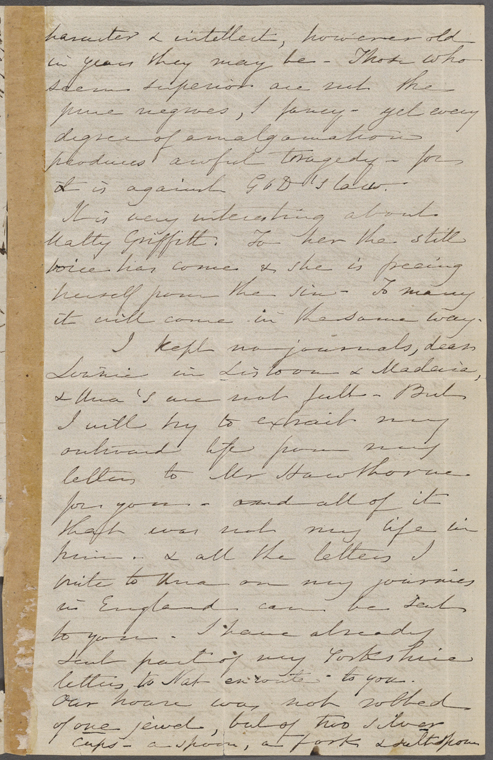 haracter & intellect, however old
in years they may be - Those who
seem superior are not the
pure negroes, I fancy - yet every
degree of amalgamation
produces awful tragedy - for
it is against GOD's law.
It is very interesting about
Matty Griffith. To her the still
voice has come & she is freeing
herself from the sin - To many
it will come in the same way.
I kept no journals, dear
in Lisbon & Madeira,
& Una's are not full - But
I will try to extract my
outward life from my
letters to Mr Hawthorne
for you - and all of it
that was not my life in
him - & all the letters I
write to Una on my journies
in England can be sent
to you - I have already
sent part of my Yorkshire
letters to Nat en route to you.
Our house was not robbed
of one jewel, but of two silver
cups - a spoon, a fork & saltspoon